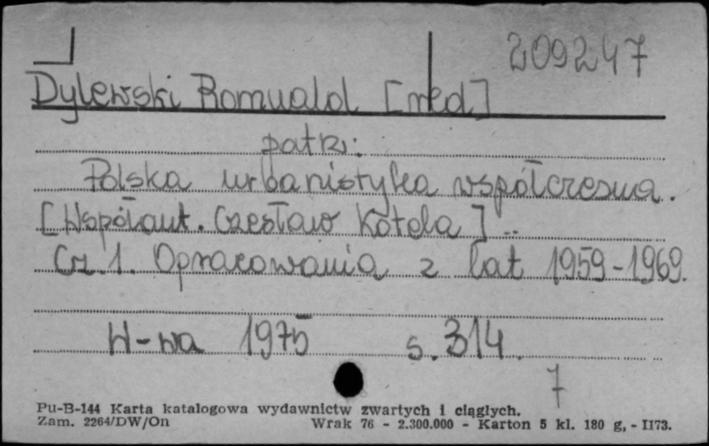 209247
Dylewski Romuald [red]
patrz:
Polska urbanistyka współczesna.
[Współaut. Czesław Kotela]..
Cz. 1. Opracowania z lat 1959-1969.
W-wa 1975 s. 314.
7
Pu-B-144 Karta katalogowa wydawnictw zwartych i ciągłych.
Zam. 2264/DW/On Wrak 76 - 2.300.000 - Karton 5 kl. 180 g, - II73.